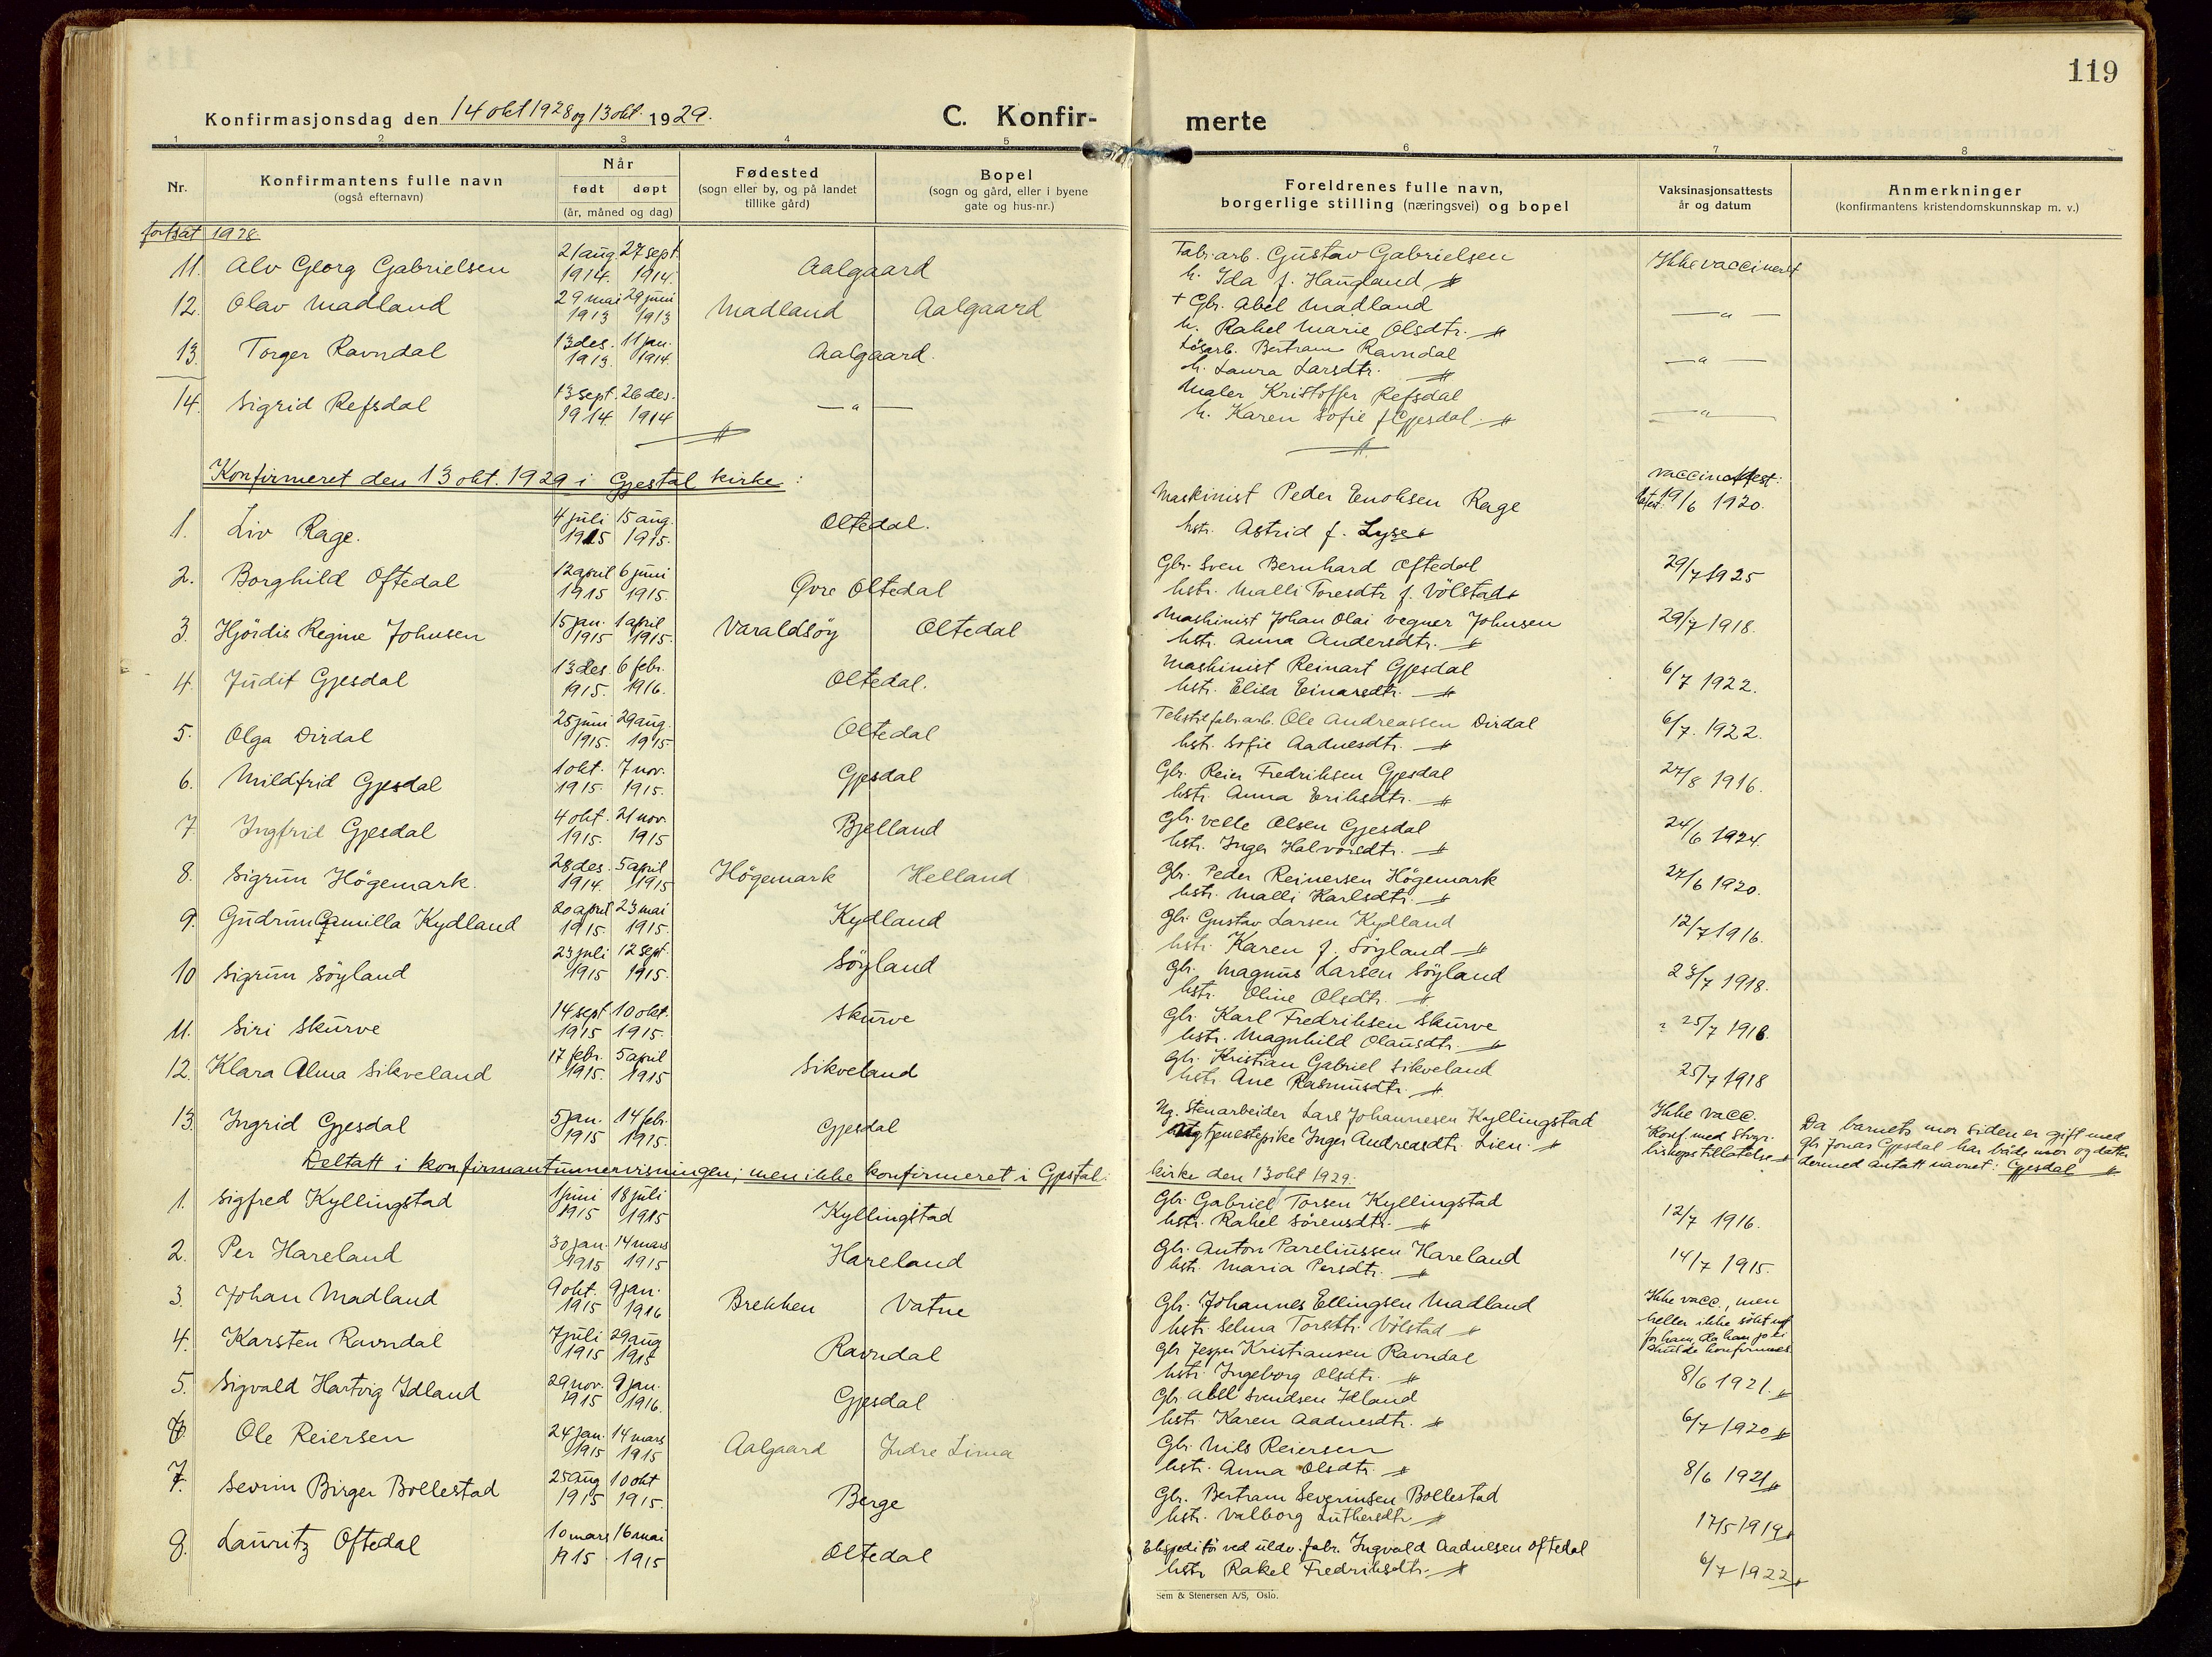 119
Konfirmasjonsdag den 14 okt 1928 og 13 okt. 1929.
C. Konfir- merte
1 2 3 4 5 6 7 8
Nr.
Konfirmantens fulle navn
(også efternavn)
Når
født døpt
(år, måned og dag)
Fødested
(sogn eller by, og på landet
tillike gård)
Bopel
(sogn og gård, eller i byene
gate og hus-nr.)
Foreldrenes fulle navn,
borgerlige stilling (næringsvei) og bopel
Vaksinasjonsattests
år og datum
Anmerkninger
(konfirmantens kristendomskunnskap m. v.)
fortsat 1928
11. Alv Georg Gabrielsen 21 aug. 1914. 27 sept. 1914. Aalgaard Fabr.arb. Gustav Gabrielsen Ikke vaccineret
h. Ida f. Haugland
12. Olav Madland 29 mai 1913 29 juni 1913 Madland Aalgaard + Gbr. Abel Madland —"—
h. Rakel Marie Olsdtr.
13. Torger Ravndal 13 des. 1913. 11 jan. 1914. Aalgaard. Løsarb. Bertram Ravndal —"—
h. Laura Larsdtr.
14. Sigrid Refsdal 13 sept. 1914. 26 des. 1914 —"— Maler Kristoffer Refsdal —"—
h. Karen Sofie f. Gjesdal
Konfirmeret den 13 okt. 1929 i Gjestal kirke: vaccinattest:
1. Liv Rage. 4 juli 1915 15 aug. 1915. Oltedal. Maskinist Peder Enoksen Rage 19/6 1920.
hstr. Astrid f. Lyse
2. Borghild Oftedal 12 april 1915 6 juni 1915. Øvre Oltedal Gbr. Sven Bernhard Oftedal 29/7 1925
hstr. Malli Toresdtr f. Völstad
3. Hjördis Regine Johnsen 15 jan. 1915 1 april 1915. Varaldsöy Oltedal Maskinist Johan Olai Vegner Johnsen 29/7 1918.
hstr. Anna Andersdtr.
4. Judit Gjesdal 13 des. 1915. 6 febr. 1916. Oltedal. Maskinist Reinart Gjesdal 6/7 1922.
hstr. Elisa Einarsdtr.
5. Olga Dirdal 25 juni 1915. 29 aug. 1915 Oltedal Tekstilfabr.arb. Ole Andreassen Dirdal 6/7. 1922.
hstr. Sofie Aadnesdtr.
6. Mildfrid Gjesdal 1 okt. 1915. 7 nov. 1915. Gjesdal Gbr. Reier Fredriksen Gjesdal 27/8 1916.
hstr. Anna Eriksdtr.
7. Ingfrid Gjesdal 4 okt. 1915. 21 nov. 1915 Bjelland Gbr. Velle Olsen Gjesdal 24/6 1924.
hstr. Inger Halvorsdtr.
8. Sigrun Högemark. 28 des. 1914. 5 april 1915 Högemark Helland Gbr. Peder Reinersen Högemark 27/6 1920.
hstr. Malli Karlsdtr.
9. Gudrun Camilla Kydland 20 april 1915 23 mai 1915. Kydland Gbr. Gustav Larsen Kydland 12/7 1916.
hstr. Karen f. Söyland
10 Sigrun Söyland 23 juli 1915 12 sept. 1915. Söyland Gbr. Magnus Larsen Söyland 23/7 1918.
hstr. Oline Olsdtr.
11. Siri Skurve 14 sept 1915 10 okt. 1915. Skurve Gbr. Karl Fredriksen Skurve 25/7 1918.
hstr. Magnhild Olausdtr.
12. Klara Alma Sikveland 17 febr. 1915. 5 april 1915 Sikveland Gbr. Kristian Gabriel Sikveland 25/7 1918
hstr. Ane Rasmusdtr.
13. Ingrid Gjesdal 5 jan. 1915 14 febr. 1915. Gjesdal Ug. Stenarbeider Lars Johannesen Kyllingstad Ikke vacc.
og tjenestepike Inger Andreasdtr. Lien. Konf. med Stvgr. bispens tillatelse
Da barnets mor siden er gift med
gbr. Jonas Gjesdal har både mor og datter
dermed antatt navnet: Gjesdal
Deltatt i konfirmantunnervisningen; men ikke konfirmeret i Gjestal kirke den 13 okt 1929.
1. Sigfred Kyllingstad 1 juni 1915 18 juli 1915 Kyllingstad Gbr. Gabriel Torsen Kyllingstad 12/7 1916.
hstr. Rakel Sörensdtr.
2. Per Hareland 30 jan. 1915 14 mars 1915 Hareland Gbr. Anton Pareliussen Hareland 14/7 1915.
hstr. Maria Persdtr.
3. Johan Madland 9 okt. 1915 9 jan. 1916 Brekken Vatne Gbr. Johannes Ellingsen Madland Ikke vacc., men
hstr. Selma Torsdtr. Völstad heller ikke søkt
for ham, da han jo ei
skulde konfirmeres
4. Karsten Ravndal 7 juli 1915 29 aug 1915 Ravndal Gbr Jesper Kristiansen Ravndal 8/6 1921.
hstr. Ingeborg Olsdtr.
5. Sigvald Hartvig Idland 29 nov. 1915 9 jan. 1916. Gjesdal Gbr. Abel Svendsen Idland 6/7 1920
hstr. Karen Aadnesdtr.
6. Ole Reiersen 24 jan. 1915 14 mars 1915 Aalgaard Indre Lima Gbr. Nils Reiersen 8/6 1921
hstr. Anna Olsdtr.
7. Sevrin Birger Bollestad 25 aug 1915 10 okt 1915. Berge Gbr. Bertram Severinsen Bollestad 17/5 1919
hstr. Valborg Luthersdtr
8. Lauritz Oftedal 10 mars 1915 16 mai 1915 Oltedal Ekspeditör ved uldv.fabr. Ingvald Aadnesen Oftedal 6/7 1922
hstr Rakel Fredriksdtr.
Sem & Stenersen A/S, Oslo.